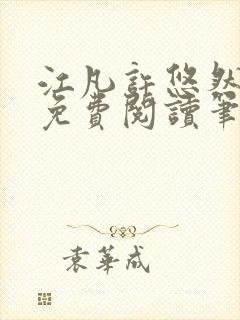 江凡許悠然
免費閱讀筆
袁華成